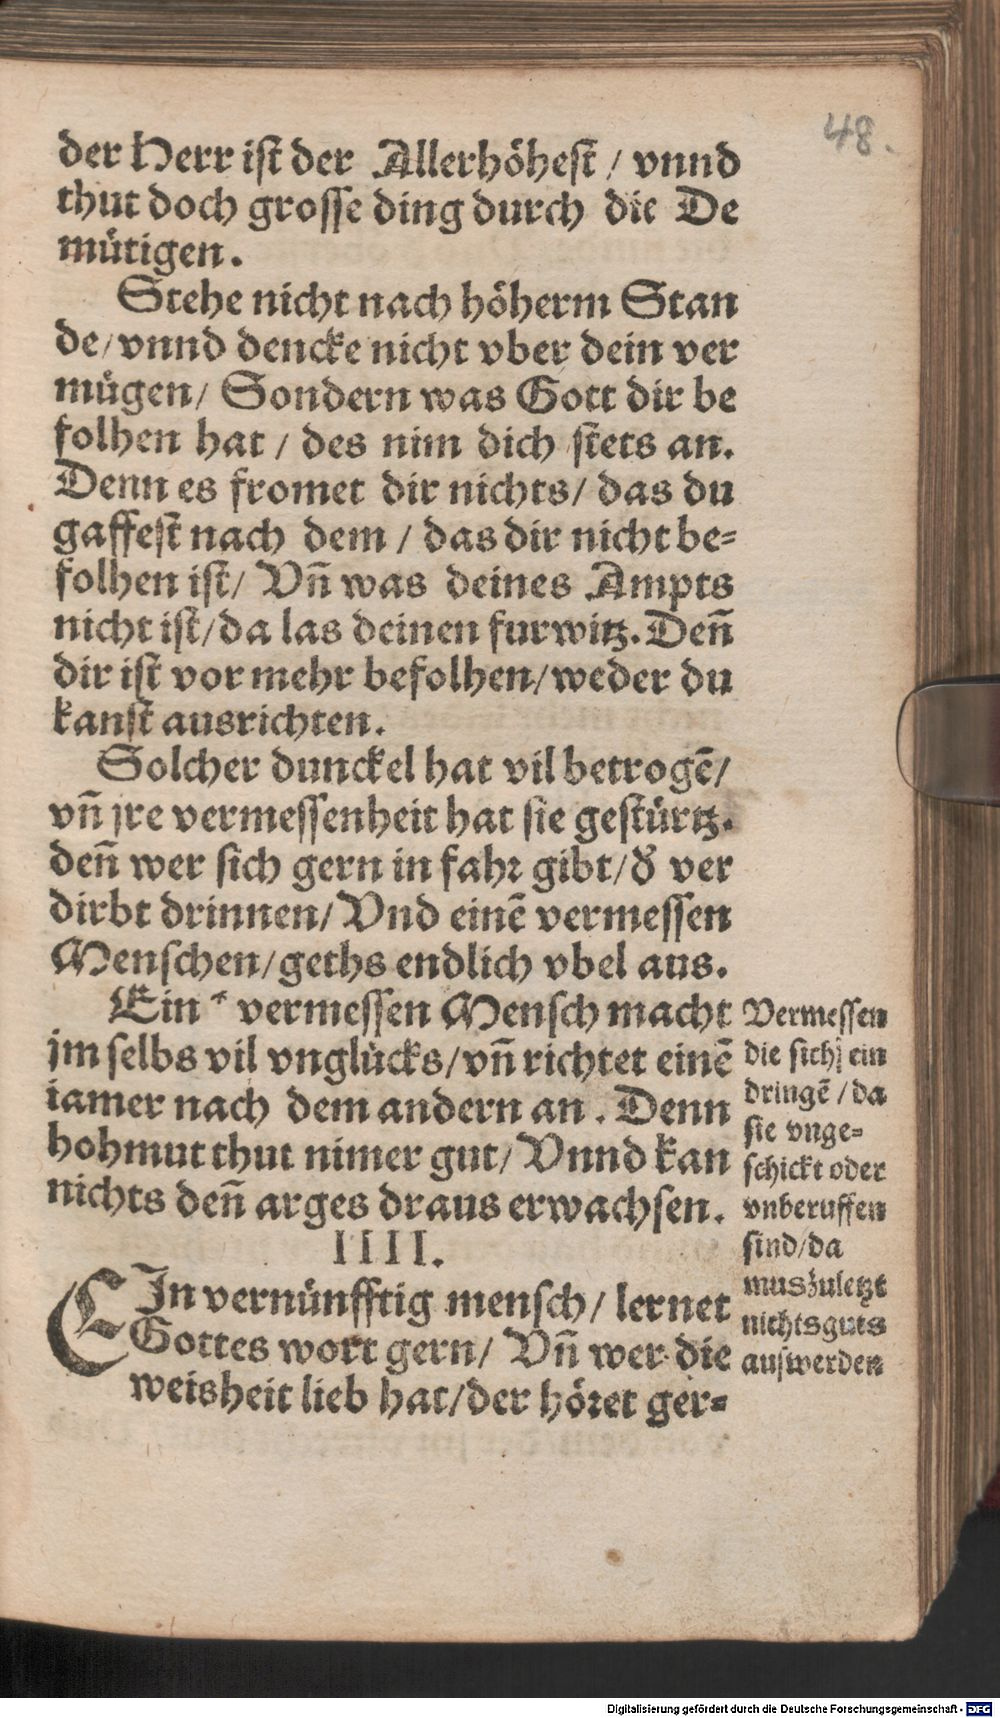 48.
der Herr ist der Allerhöhest / vnnd
thut doch grosse ding durch die De
mütigen.
Stehe nicht nach höherm Stan
de/vnnd dencke nicht vber dein ver
mügen/ Sondern was Gott dir be
folhen hat / des nim dich stets an.
Denn es fromet dir nichts/ das du
gaffest nach dem / das dir nicht be-
folhen ist/ Vn̄ was deines Ampts
nicht ist/da las deinen furwitz. Den̄
dir ist vor mehr befolhen/weder du
kanst ausrichten.
Solcher dunckel hat vil betrogē/
vn̄ jre vermessenheit hat sie gestürtz.
den̄ wer sich gern in fahr gibt/d' ver
dirbt drinnen/Vnd einē vermessen
Menschen/geths endlich vbel aus.
Ein * vermessen Mensch macht
jm selbs vil vnglücks/vn̄ richtet einē
iamer nach dem andern an. Denn
hohmut thut nimer gut/ Vnnd kan
nichts den̄ arges draus erwachsen.
Vermessen
die sich ein
dringē /da
sie vnge-
schickt oder
vnberuffen
sind/da
mus zuletzt
nichts guts
aus werden
IIII.
EIn vernünfftig mensch/ lernet
Gottes wort gern/ Vn̄ wer die
weisheit lieb hat/der höret ger-
Digitalisierung gefördert durch die Deutsche Forschungsgemeinschaft - DFG